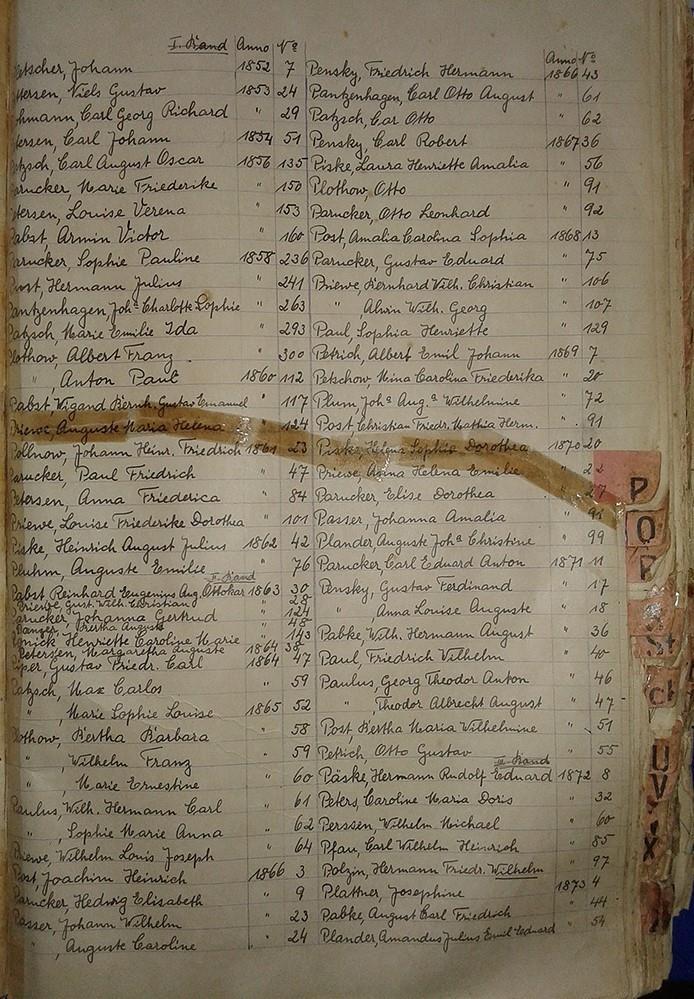 I. Band Anno No
etscher, Johann 1852 7
tersen, Niels Gustav 1853 24
hmann Carl Georg Richard " 29
tersen, Carl Johann 1854 51
tzsch, Carl August Oscar 1856 135
arucker, Marie Friederike " 150
etersen, Louise Verena " 153
Pabst, Armin Victor " 160
Parucker, Sophie Pauline 1858 236
Post, Hermann Julius " 241
Pantzenhagen, Joha Charlotte Sophie " 263
Patzsch, Marie Emilie Ida " 293
Plothow, Albert Franz " 300
", Anton Paul 1860 112
Pabst, Wigand Bernh. Gustav Emanuel " 117
Priewe, Auguste Maria Helena " 124
Pollnow, Johann Heinr. Friedrich 1861 23
Parucker, Paul Friedrich " 47
Petersen, Anna Friederica " 84
Priewe, Louise Friederike Dorothea " 101
Piske, Heinrich August Julius 1862 42
Pluhm, Auguste Emilie " 76
II. Band
Pabst Reinhard Eugenius Aug. Ottokar 1863 30
Priewe Gust. Wilh. Christian 28
Parucker, Johanna Gertrud " 124
Bertha Auguste 48
Henriette Caroline Marie " 143
Petersen, Margaretha Auguste 1864 38
Piper Gustav Friedr. Carl 1864 47
Patzsch, Max Carlos " 59
", Marie Sophie Louise 1865 52
Plothow, Bertha Barbara " 58
", Wilhelm Franz " 59
", Marie Ernestine " 60
Paulus, Wilh. Hermann Carl " 61
", Sophie Marie Anna " 62
Priewe, Wilhelm Louis Joseph " 64
Post, Joachim Heinrich 1866 3
Parucker, Hedwig Elisabeth " 9
Passer, Johann Wilhelm " 23
", Auguste Caroline " 24
Anno No
Pensky, Friedrich Hermann 1866 43
Pantzenhagen, Carl Otto August " 61
Patzsch, Car Otto " 62
Pensky, Carl Robert 1867 36
Piske, Laura Henriette Amalia " 56
Plothow, Otto " 91
Parucker, Otto Leonhard " 92
Post, Amalia Carolina Sophia 1868 13
Parucker, Gustav Eduard " 75
Priewe, Bernhard Wilh. Christian " 106
" Alwin Wilh. Georg " 107
Paul, Sophia Henriette " 129
Petrich, Albert Emil Johann 1869 7
Petschow, Mina Carolina Friederika " 20
Plum, Joha Aug.a Wilhelmine " 72
Post Christian Friedr. Mathia Herm. " 91
Piske, Helena Sophia Dorothea 1870 20
Priewe, Anna Helena Emilie " 22
Parucker, Elise Dorothea " 27
Passer, Johanna Amalia " 91
Plander, Auguste Joha Christine " 99
Parucker, Carl Eduard Anton 1871 11
Pensky, Gustav Ferdinand " 17
" Anna Louise Auguste " 18
Pabke, Wilh. Hermann August " 36
Paul, Friedrich Wilhelm " 40
Paulus, Georg Theodor Anton " 46
" Theodor Albrecht August " 47
Post, Bertha Maria Wilhelmine " 51
Petrich, Otto Gustav " 55
III. Band
Päske, Hermann Rudolf Eduard 1872 8
Peters, Caroline Maria Doris " 32
Perssen, Wilhelm Michael " 60
Pfau, Carl Wilhelm Heinrich " 85
Polzin, Hermann Friedr. Wilhelm " 97
Plattner, Josephine 1873 4
Pabke, August Carl Friedrich " 44
Plander, Amandus Julius Emil Eduard " 54
P
O
St
UV
X